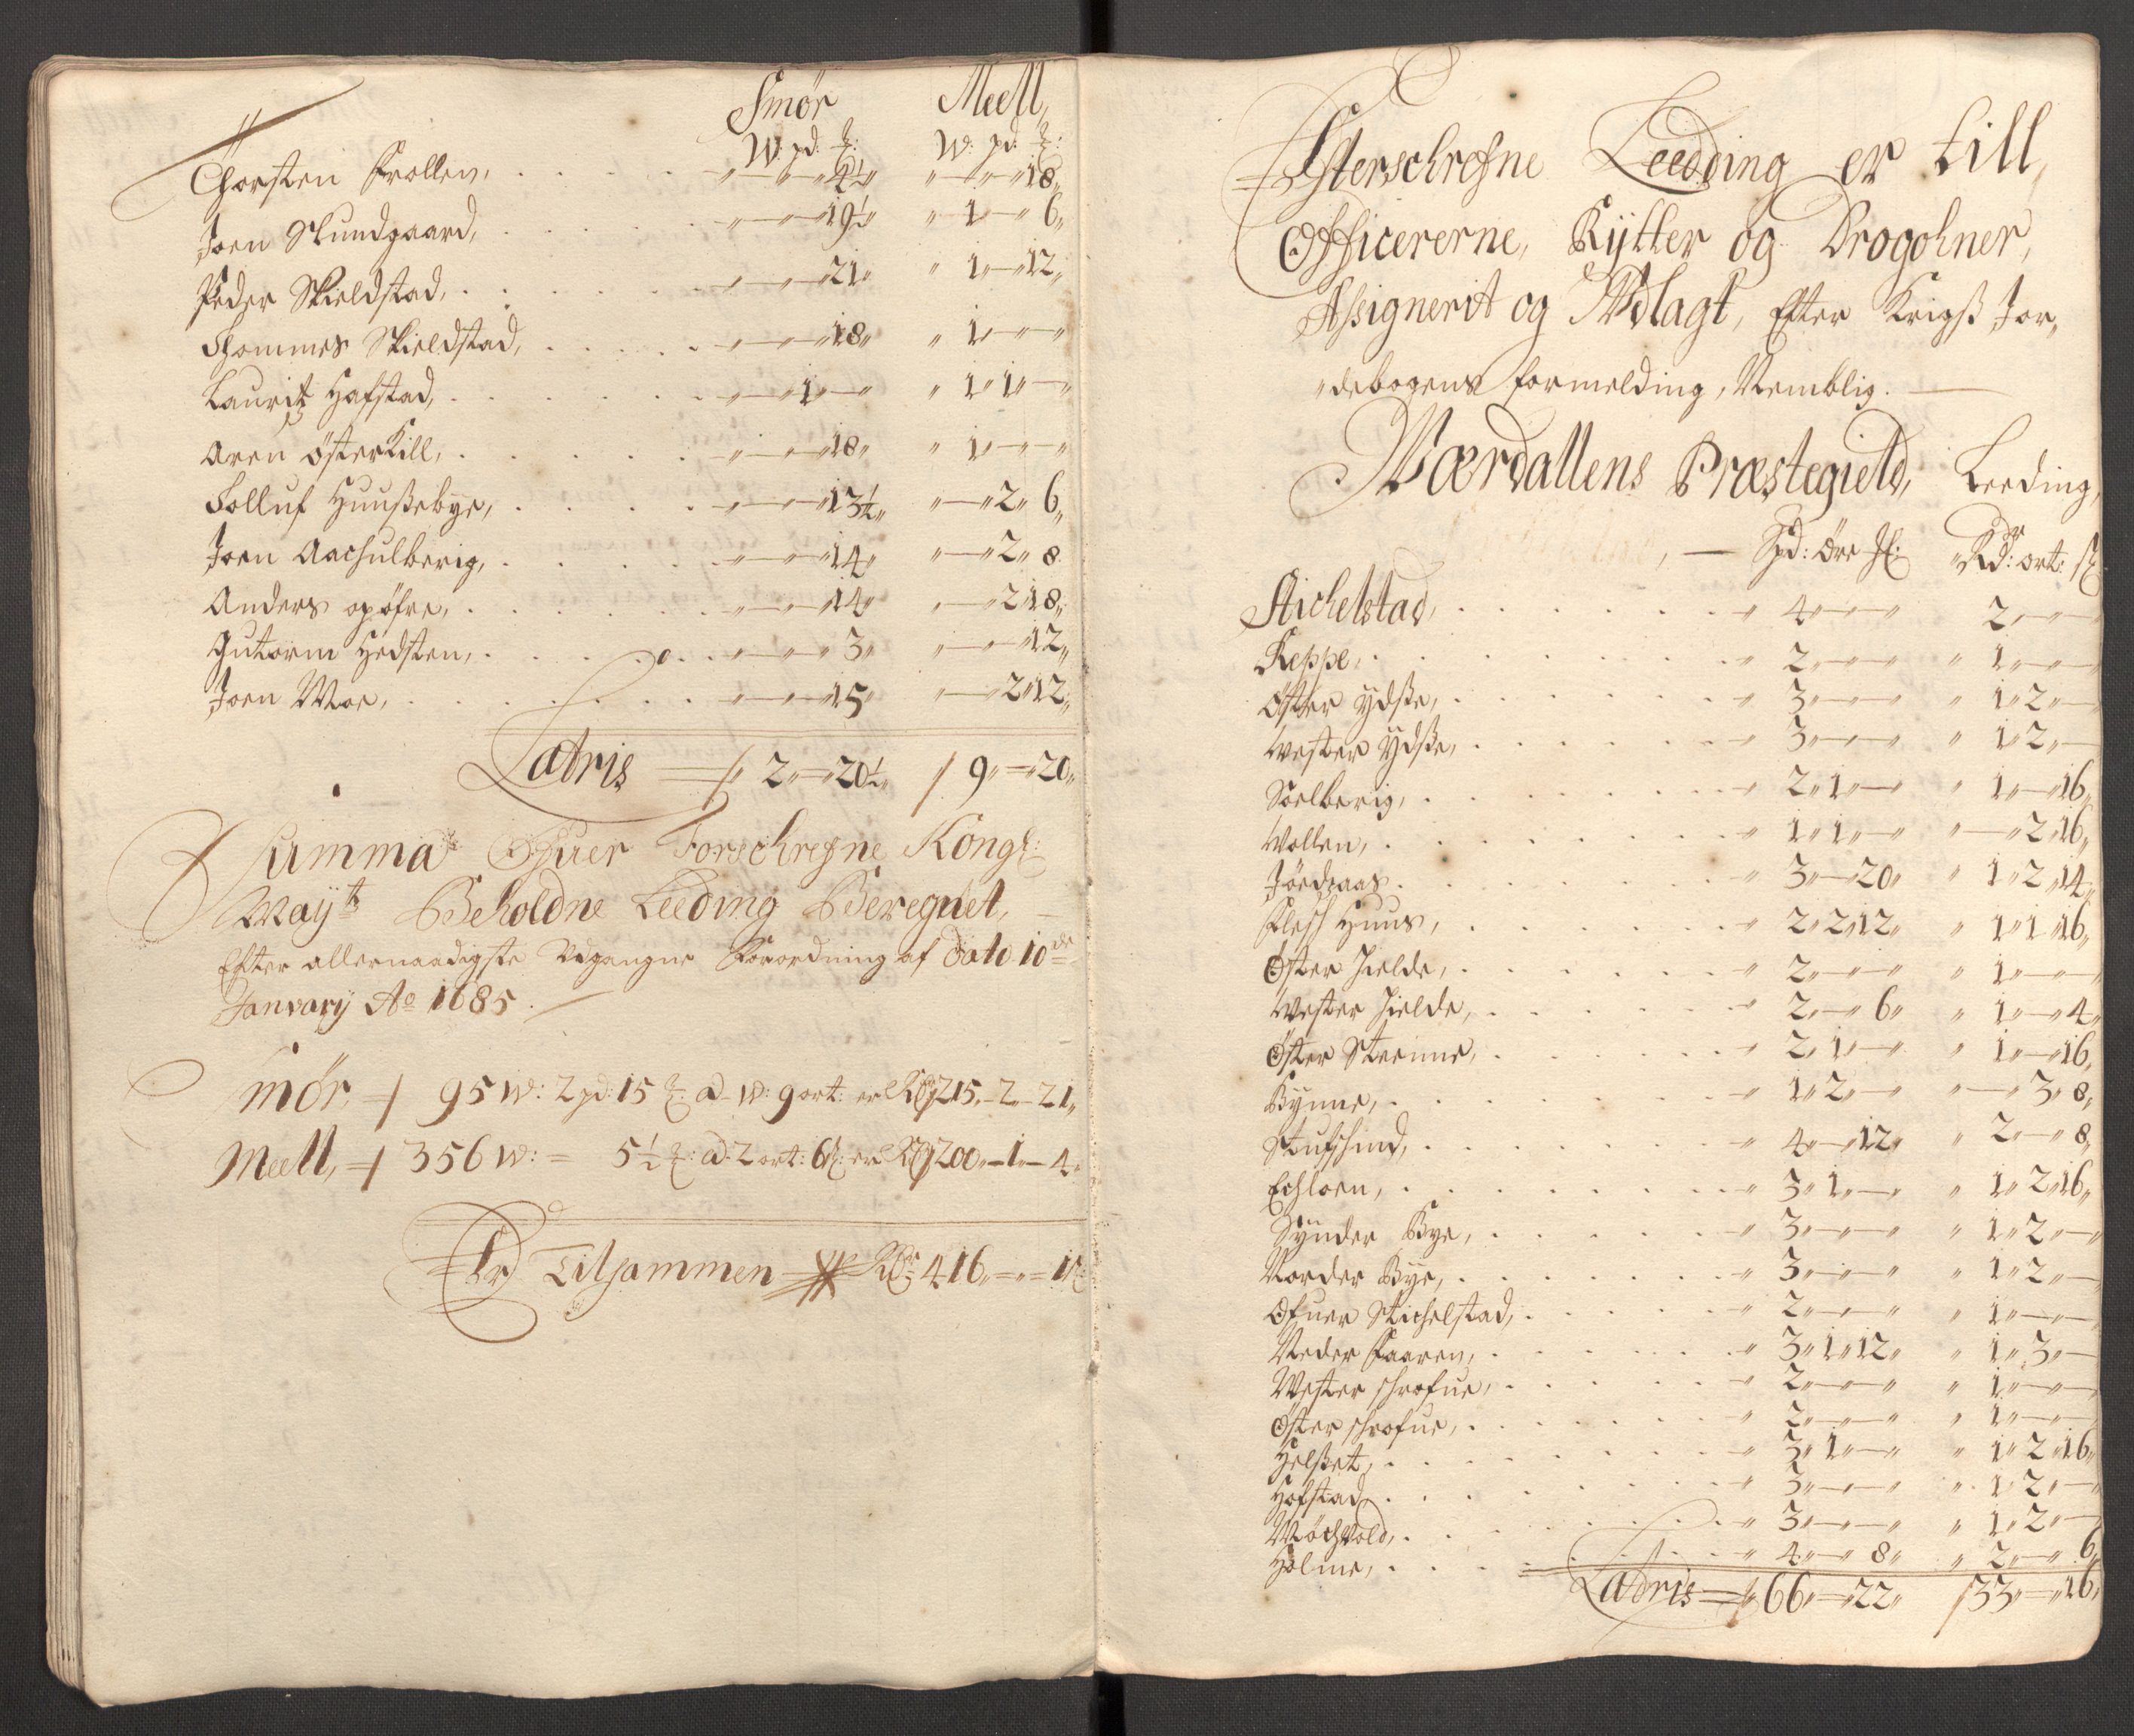 Smør Meell
W: pd: ℔: W: pd: ℔:
Thorsten Trollen, „ — „ — „ 4½ „ „ — „ — „ 18 „
Joen Slundgaard, „ — „ — „ 19½ „ „ 1 „ — „ 6 „
Peder Skieldstad, „ — „ — „ 21 „ „ 1 „ — „ 12 „
Thommes Skieldstad, „ — „ — „ 18 „ „ 1 „ — „ — „
Lauritz Hafstad, „ — „ 1 „ — „ „ 1 „ 1 „ — „
Aren Østerkill, „ — „ — „ 18 „ „ 1 „ — „ — „
Tolluf Huusebye, „ — „ — „ 13½ „ „ — „ 2 „ 6 „
Joen Aachulberig, „ — „ — „ 14 „ „ — „ 2 „ 8
Anders opøfre, „ — „ — „ 14 „ „ — „ 2 „ 18 „
Gutorm Hedsten, „ — „ — „ 3 „ „ — „ — „ 12 „
Joen Moe, „ — „ — „ 15 „ „ — „ 2 „ 12 „
Latris „ 2 „ — „ 20½ „ 9 „ — „ 20 „
Summa Ofuer Forschrefne Kongl:
Mayts Beholdne Leeding Beregnet,
Efter allernaadigste Udgangne Forordning af Dato 10de
January Ao 1685.
Smør 95 W: 2 pd: 15 ℔: ad W: 9 ort: er Rdr 215 „ — 2 „ — 21 „
Meell, 356 W: = 5½ ℔: ad 2 ort: 6 ß: er Rdr 200 „ — 1 „ — 4 „
Er Tilsammen Rdr 416 „ = „ = 1 ß
Efterschrefne Leedding er till,
Officererne, Rÿtter og Drogohner,
Assignerit og Udlagt, Efter Krigß Jor„
„debogens formelding, Nemblig.
Værdallens Præstegield, Leeding,
Spd: Øre ß: Rdr: ort: ß
Stichelstad, „ 4 „ — „ — „ 2 „ — „ —
Reppe, „ 2 „ — „ — „ „ 1 „ — „ —
Øster ydße, „ 3 „ — „ — „ „ 1 „ 2 „ —
Wester ydße, „ 3 „ — „ — „ „ 1 „ 2 „ —
Soelberig, „ 2 „ 1 „ — „ „ 1 „ — „ 16 „
Wollen, „ 1 „ 1 „ — „ „ — „ 2 „ 16 „
Jördraas „ 3 „ — „ 20 „ „ 1 „ 2 „ 14 „
Flesch Huus, „ 2 „ 2 „ 12 „ „ 1 „ 1 „ 16 „
Øster Hielde, „ 2 „ — „ — „ „ 1 „ — „ —
Wester Hielde, „ 2 „ — „ 6 „ „ 1 „ — „ 4 „
Øster Steenne, „ 2 „ 1 „ — „ „ 1 „ — „ 16 „
Bynne, „ 1 „ 2 „ — „ „ — „ 3 „ 8 „
Stufschind, „ 4 „ — „ 12 „ „ 2 „ — „ 8 „
Echloen, „ 3 „ 1 „ — „ „ 1 „ 2 „ 16 „
Sÿnder Bye, „ 3 „ — „ — „ „ 1 „ 2 „ —
Norder Bye, „ 3 „ — „ — „ „ 1 „ 2 „ —
Ofuer Stichelstad, „ 2 „ — „ — „ „ 1 „ — „ —
Neder Faaren, „ 3 „ 1 „ 12 „ „ 1 „ 3 „ —
Wester schrofue, „ 2 „ — „ — „ „ 1 „ — „ —
Øster schrofue, „ 2 „ — „ — „ „ 1 „ — „ —
Helßet, „ 3 „ 1 „ — „ „ 1 „ 2 „ 16 „
Hofstad, „ 3 „ — „ — „ „ 1 „ 2 „ —
Möchvold, „ 3 „ — „ — „ „ 1 „ 2 „ —
Holme, „ 4 „ — „ 8 „ „ 2 „ — „ 6 „
Latris „ 66 „ — „ 22 „ 33 „ — „ 16 „